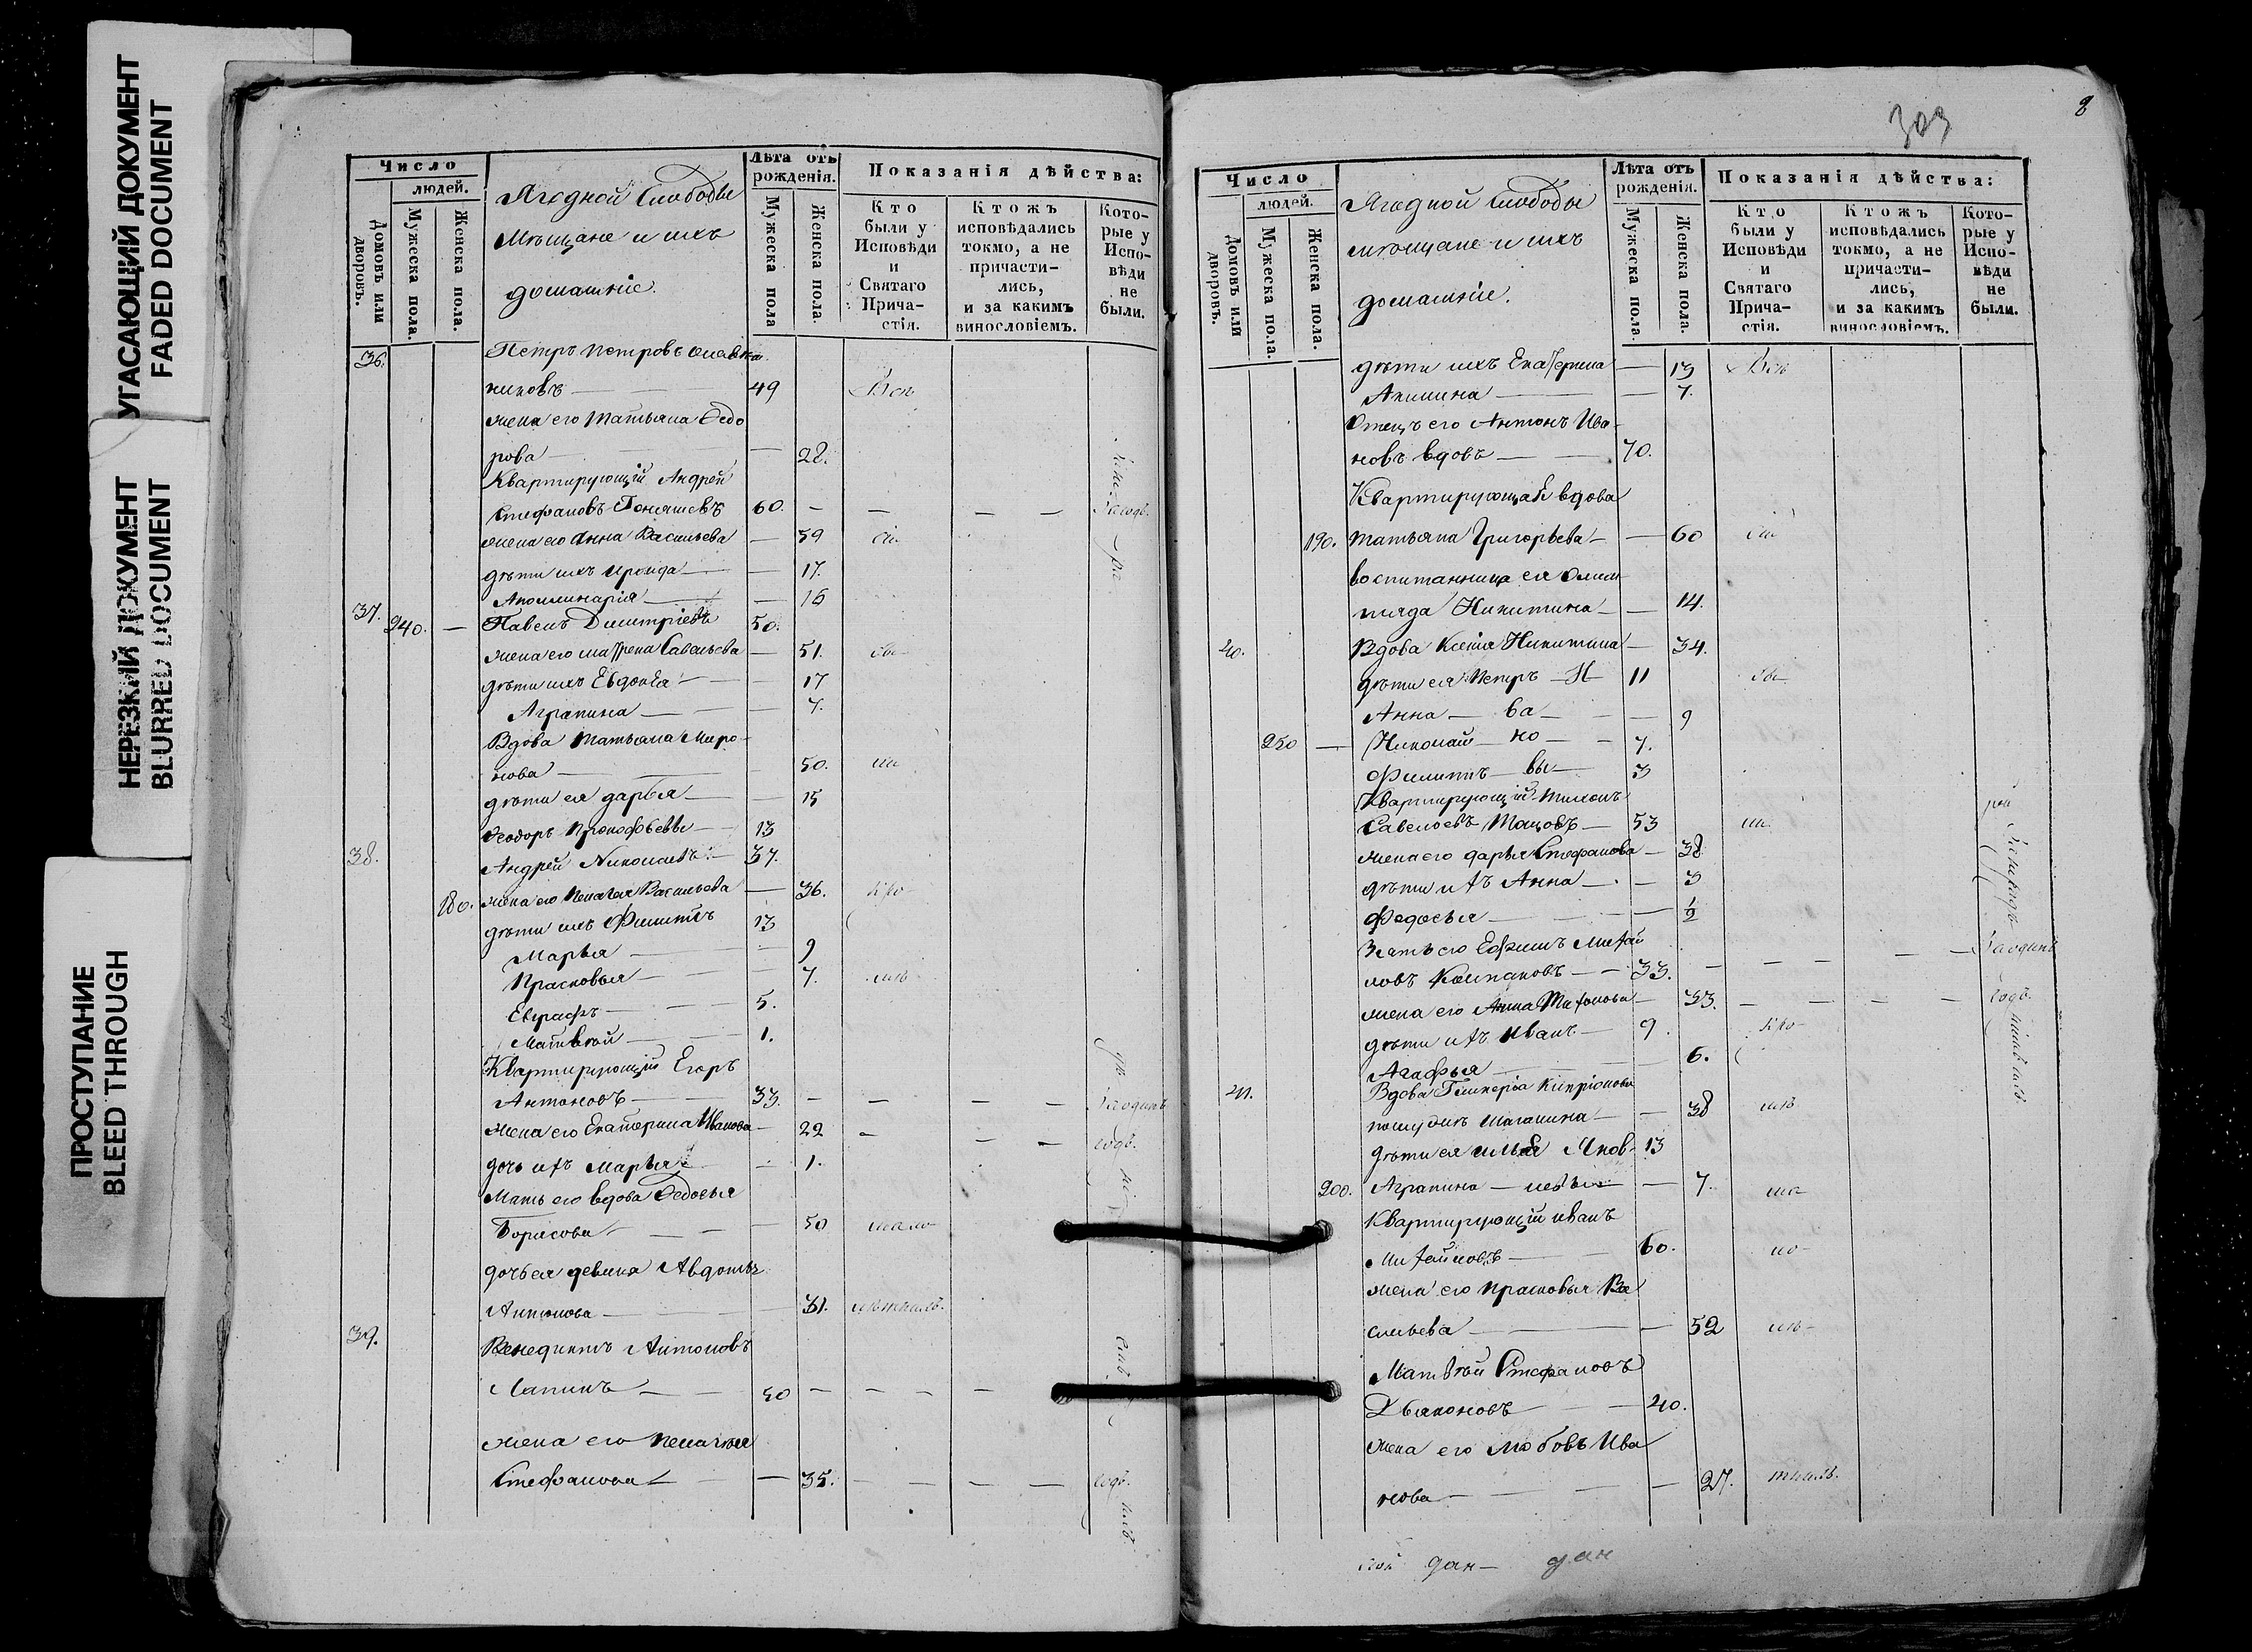 УГАСАЮЩИЙ ДОКУМЕНТ
FADED DOCUMENT
НЕРЕЗКИЙ ДОКУМЕНТ
BLURRED DOCUMENT
ПРОСТУПАНИЕ
BLEED THROUGH
Число
людей.
Домовъ или дворовъ.
Мужеска пола.
Женска пола.
Ягодной Слободы
Мѣщане и ихъ
домашніе.
Лѣта отъ рожденія.
Мужеска пола
Женска пола.
Показанія дѣйства:
Кто были у Исповѣди и Святаго Прича- стія.
Ктожъ исповѣдались токмо, а не причасти- лись, и за какимъ винословіемъ.
Кото- рые у Испо- вѣди не были.
36. Петръ Петровъ
никовъ — 49 Всѣ
жена его Татьяна Ѳедо
рова — — 28.
Квартирующій Андрей
Стефановъ 60. — — — —
жена его Анна Васильева — 59
дѣти ихъ Ираида — — 17.
Аполлинарія — — 16
37. 240. — Павелъ Димитріевъ 50.
жена его Матрена Савельева — 51.
дѣти ихъ Евдокія — — 17
Агрипина — — 7.
Вдова Татьяна Миро-
нова — 50.
дѣти ея Дарья — — 15
Ѳеодоръ Прокофьевы — 13
38. Андрей Николаевъ — 37.
180. жена его Пелагея Васильева — 36. кро-
дѣти ихъ Филиппъ 13
Марья — — 9
Прасковья — — 7.
Евграфъ — — 5.
Матвѣй — — 1.
Квартирующій Егоръ
Антоновъ — 33. — — — за одинъ
жена его Екатерина Иванова — 22 — — — годъ.
дочь ихъ Марья — 1.
Мать его вдова Ѳедосья
Борисова — — 50
дочь ея девица Авдотья
Антонова — 31.
39. Венедиктъ Антоновъ
Лапинъ — — 40 — — — —
жена его Пелагея
Стефанова — — 35. — — — — годъ.
303
8
Число
людей.
Домовъ или дворовъ.
Мужеска пола.
Женска пола.
Ягодной Слободы
мѣщане и ихъ
домашніе.
Лѣта отъ рожденія.
Мужеска пола.
Женска пола.
Показанія дѣйства:
Кто были у Исповѣди и Святаго Прича- стія.
Ктожъ исповѣдались токмо, а не причасти- лись, и за какимъ винословіемъ.
Кото- рые у Испо- вѣди не были.
дѣти ихъ Екатерина — 13 Всѣ
Акилина — — 7.
Отецъ его Антонъ Ива-
новъ вдовъ — — 70.
Квартирующая вдова
190. Татьяна Григорьева — — 60
воспитанница ея Олим-
піада Никитина — — 14.
40. Вдова Ксенія Никитина — 34.
дѣти ея Петръ — И 11
Анна — ва — — 9
250 — Николай — но — — 7.
Филиппъ — вы — 3
Квартирующій Тихонъ
Савельевъ — 53
жена его Дарья Стефанова — 38
дѣти ихъ Анна — — 3
Ѳедосья — — ½
Зять его Ефимъ Михай
ловъ Колпаковъ — — 33. — — — — за одинъ
жена его Анна Тихонова — 33. — — — — годъ.
дѣти ихъ Иванъ — 9. кро-
Агафья — — 6.
41. Вдова Гликерія Кипріанова
— 38
дѣти ея Илья Яков- 13
200. Агрипина — левы — — 7.
Квартирующій Иванъ
Михайловъ — — 60.
жена его Прасковья Ва
сильева — — 52
Матвѣй Стефановъ
Дьяконовъ — — 40.
жена его Любовь Ива
нова — — — 27.